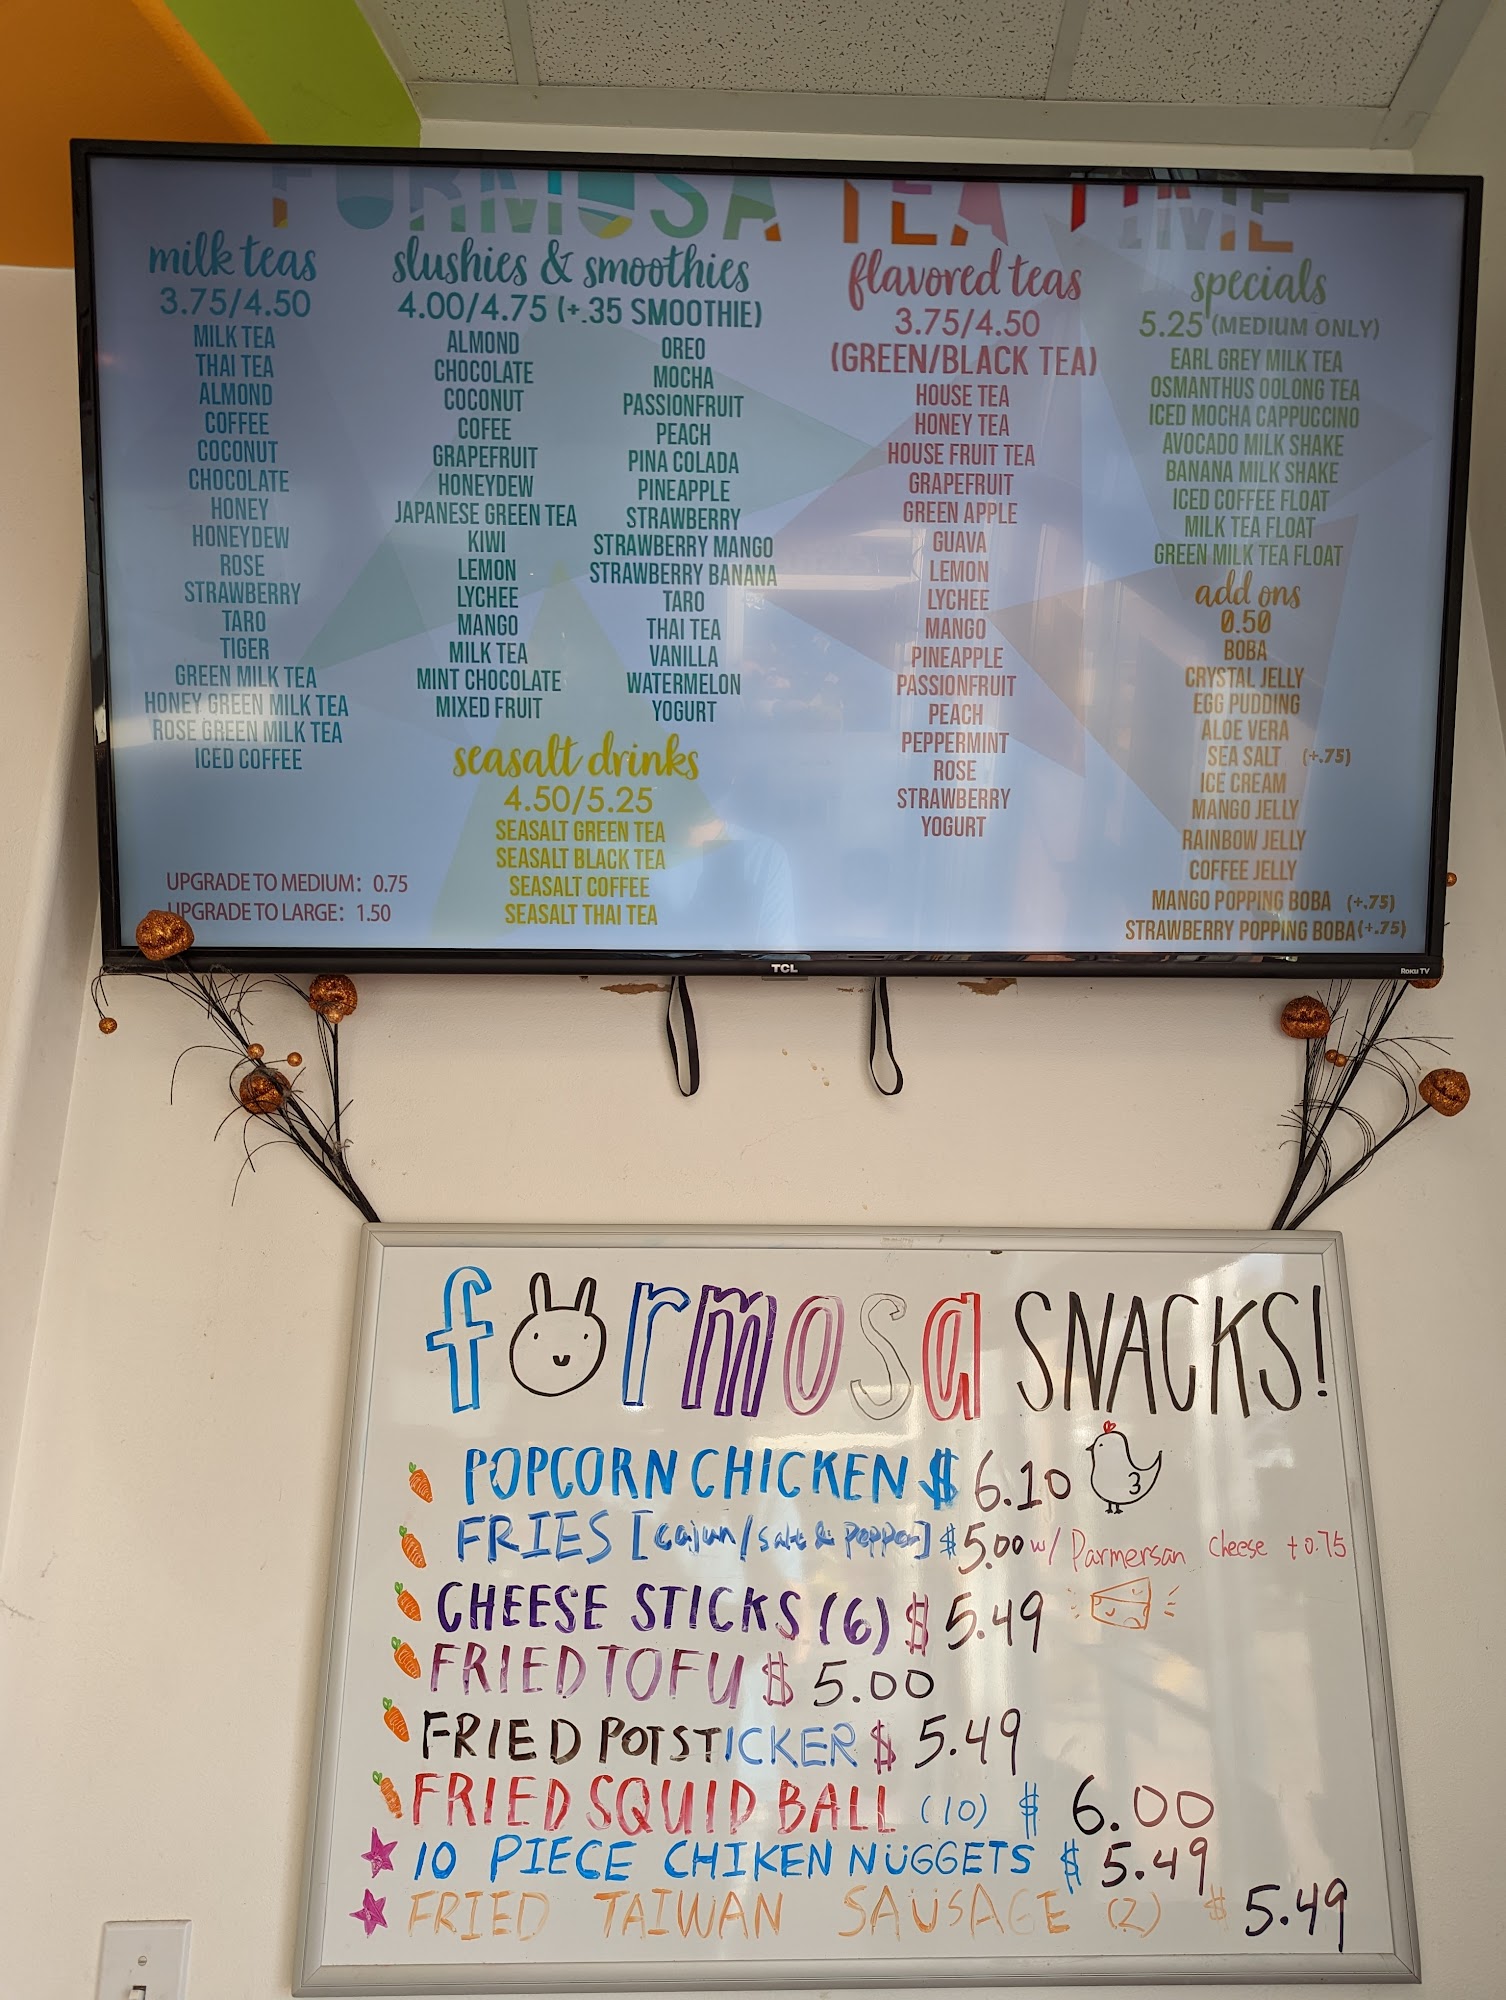 FORMOSA TEA TIME
milk teas
3.75/4.50
MILK TEA
THAI TEA
ALMOND
COFFEE
COCONUT
CHOCOLATE
HONEY
HONEYDEW
ROSE
STRAWBERRY
TARO
TIGER
GREEN MILK TEA
HONEY GREEN MILK TEA
ROSE GREEN MILK TEA
ICED COFFEE
UPGRADE TO MEDIUM: 0.75
UPGRADE TO LARGE: 1.50
slushies & smoothies
4.00/4.75 (+.35 SMOOTHIE)
ALMOND
CHOCOLATE
COCONUT
COFEE
GRAPEFRUIT
HONEYDEW
JAPANESE GREEN TEA
KIWI
LEMON
LYCHEE
MANGO
MILK TEA
MINT CHOCOLATE
MIXED FRUIT
OREO
MOCHA
PASSIONFRUIT
PEACH
PINA COLADA
PINEAPPLE
STRAWBERRY
STRAWBERRY MANGO
STRAWBERRY BANANA
TARO
THAI TEA
VANILLA
WATERMELON
YOGURT
seasalt drinks
4.50/5.25
SEASALT GREEN TEA
SEASALT BLACK TEA
SEASALT COFFEE
SEASALT THAI TEA
flavored teas
3.75/4.50
(GREEN/BLACK TEA)
HOUSE TEA
HONEY TEA
HOUSE FRUIT TEA
GRAPEFRUIT
GREEN APPLE
GUAVA
LEMON
LYCHEE
MANGO
PINEAPPLE
PASSIONFRUIT
PEACH
PEPPERMINT
ROSE
STRAWBERRY
YOGURT
specials
5.25 (MEDIUM ONLY)
EARL GREY MILK TEA
OSMANTHUS OOLONG TEA
ICED MOCHA CAPPUCCINO
AVOCADO MILK SHAKE
BANANA MILK SHAKE
ICED COFFEE FLOAT
MILK TEA FLOAT
GREEN MILK TEA FLOAT
add ons
0.50
BOBA
CRYSTAL JELLY
EGG PUDDING
ALOE VERA
SEA SALT (+.75)
ICE CREAM
MANGO JELLY
RAINBOW JELLY
COFFEE JELLY
MANGO POPPING BOBA (+.75)
STRAWBERRY POPPING BOBA (+.75)
TCL
Roku TV
formosa SNACKS!
POPCORN CHICKEN $ 6.10
FRIES [cajun/salt & pepper] $5.00 w/ Parmersan cheese +0.75
CHEESE STICKS (6) $ 5.49
FRIED TOFU $ 5.00
FRIED POTSTICKER $ 5.49
FRIED SQUID BALL (10) $ 6.00
10 PIECE CHIKEN NUGGETS $ 5.49
FRIED TAIWAN SAUSAGE (2) $ 5.49